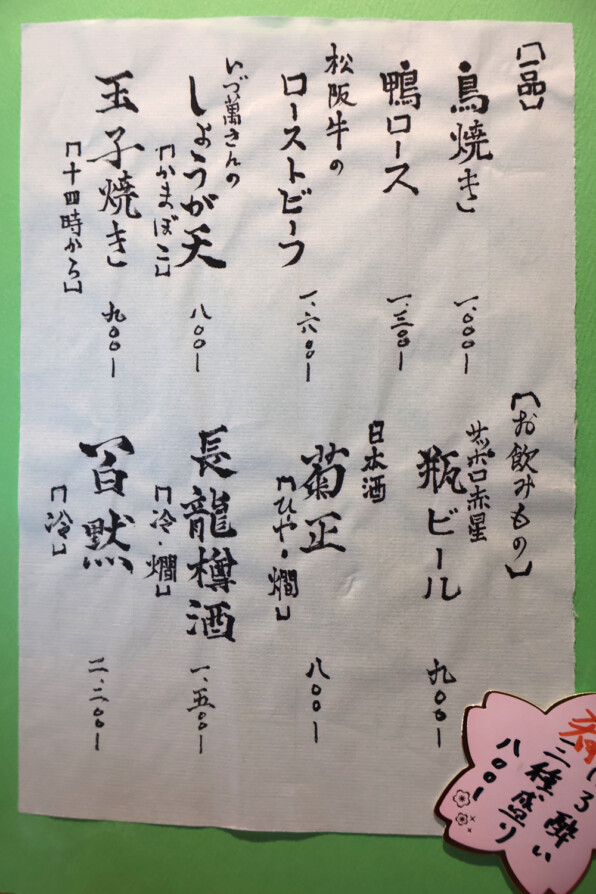 「一品」
鳥焼き 一、〇〇〇ー
鴨ロース 一、三〇〇ー
松阪牛の
ローストビーフ 一、六〇〇ー
いづ萬さんの
しょうが天 八〇〇ー
「かまぼこ」
玉子焼き 九〇〇ー
「十四時から」
「お飲みもの」
サッポロ赤星
瓶ビール 九〇〇ー
日本酒
菊正 八〇〇ー
「ひや・燗」
長龍樽酒 一、五〇〇ー
「冷・燗」
百黙 二、二〇〇ー
「冷」
ほろ酔い
三種盛り
八〇〇ー